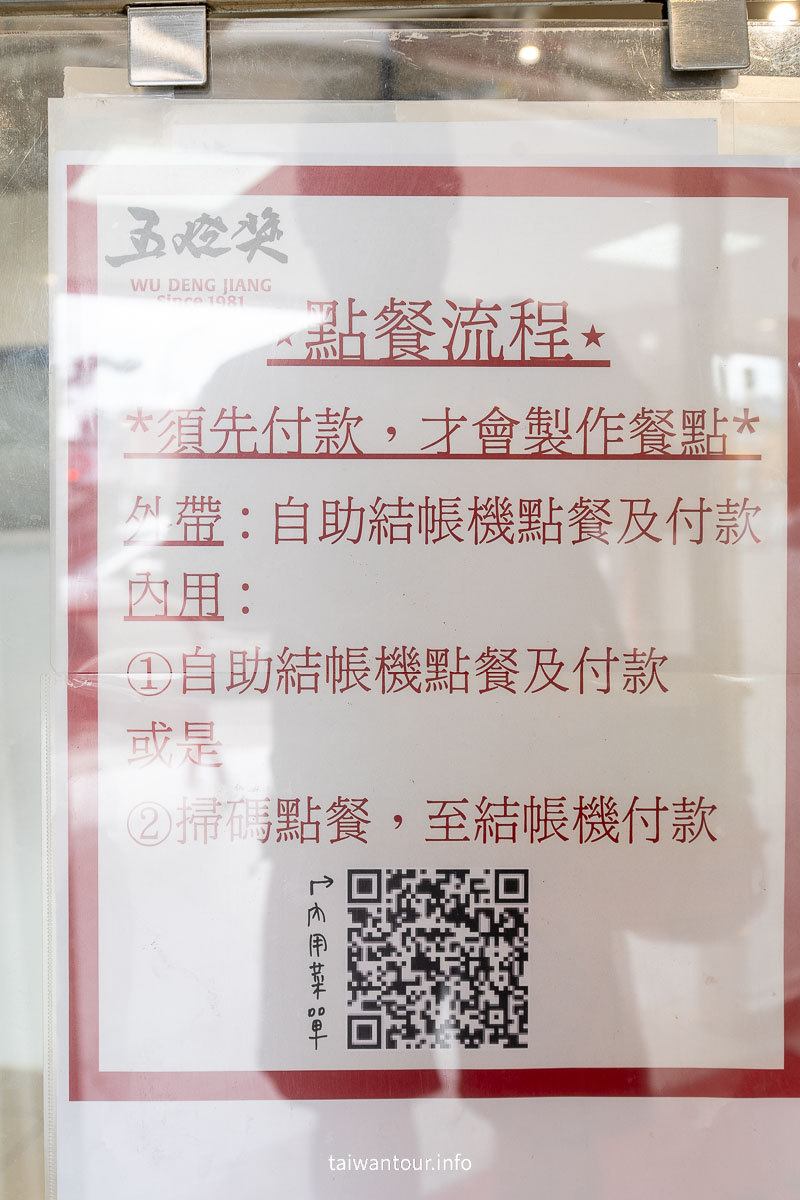 五燈獎
WU DENG JIANG
Since 1981
★點餐流程★
*須先付款，才會製作餐點*
外帶：自助結帳機點餐及付款
內用：
①自助結帳機點餐及付款
或是
②掃碼點餐，至結帳機付款
內用菜單
taiwantour.info